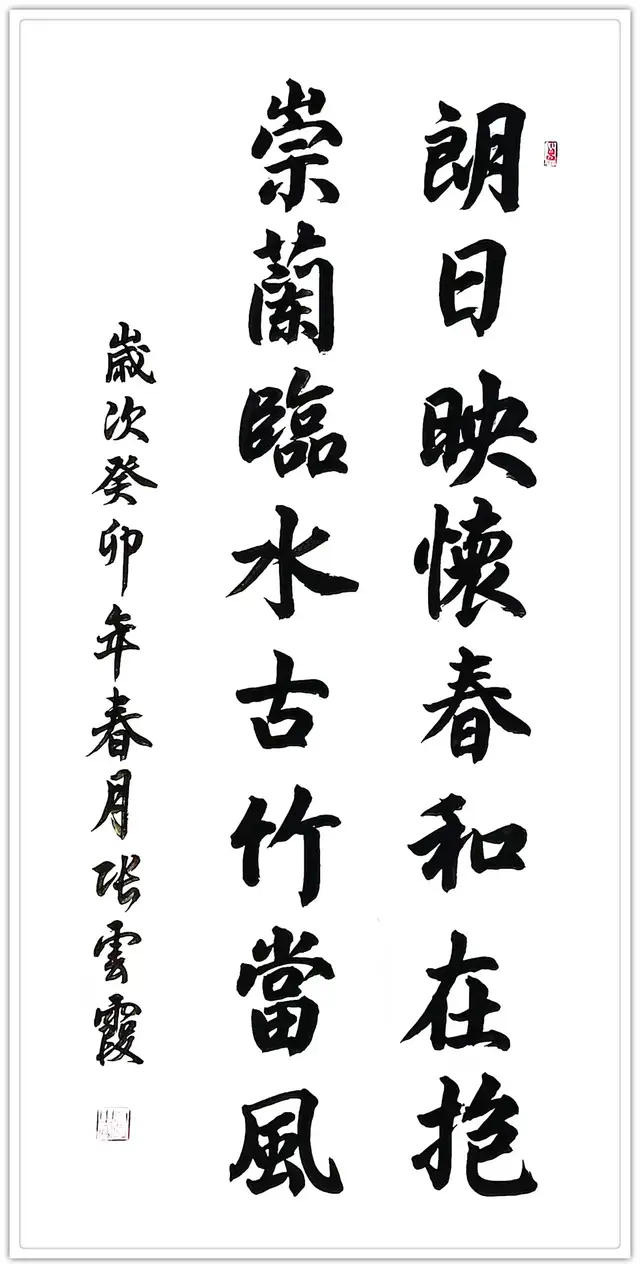 朗日映懷春和在抱
崇蘭臨水古竹當風
歲次癸卯年春月張雲霞